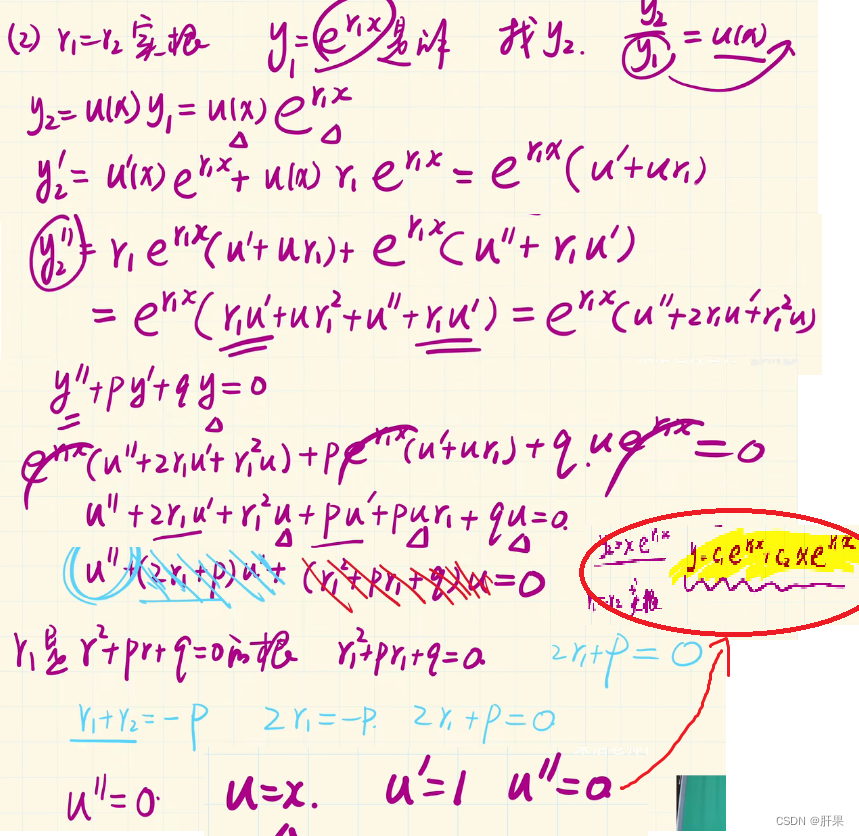 (2) r₁=r₂ 实根 y₁=e^{r₁x}是解 找y₂. y₂/y₁=u(x)
y₂=u(x)y₁=u(x)e^{r₁x}
y₂'=u'(x)e^{r₁x}+u(x)r₁e^{r₁x}=e^{r₁x}(u'+ur₁)
y₂''=r₁e^{r₁x}(u'+ur₁)+e^{r₁x}(u''+r₁u')
=e^{r₁x}(r₁u'+ur₁²+u''+r₁u')=e^{r₁x}(u''+2r₁u'+r₁²u)
y''+py'+qy=0
e^{r₁x}(u''+2r₁u'+r₁²u)+pe^{r₁x}(u'+ur₁)+q.ue^{r₁x}=0
u''+2r₁u'+r₁²u+pu'+pur₁+qu=0.
y₂=xe^{r₁x} y=c₁e^{r₁x}+c₂xe^{r₁x}
u''+(2r₁+p)u'+(r₁²+pr₁+q)u=0
r₁=r₂ 实根
r₁是r²+pr+q=0的根 r₁²+pr₁+q=0 2r₁+p=0
r₁+r₂=-p 2r₁=-p. 2r₁+p=0
u''=0. u=x. u'=1 u''=0
CSDN @肝果